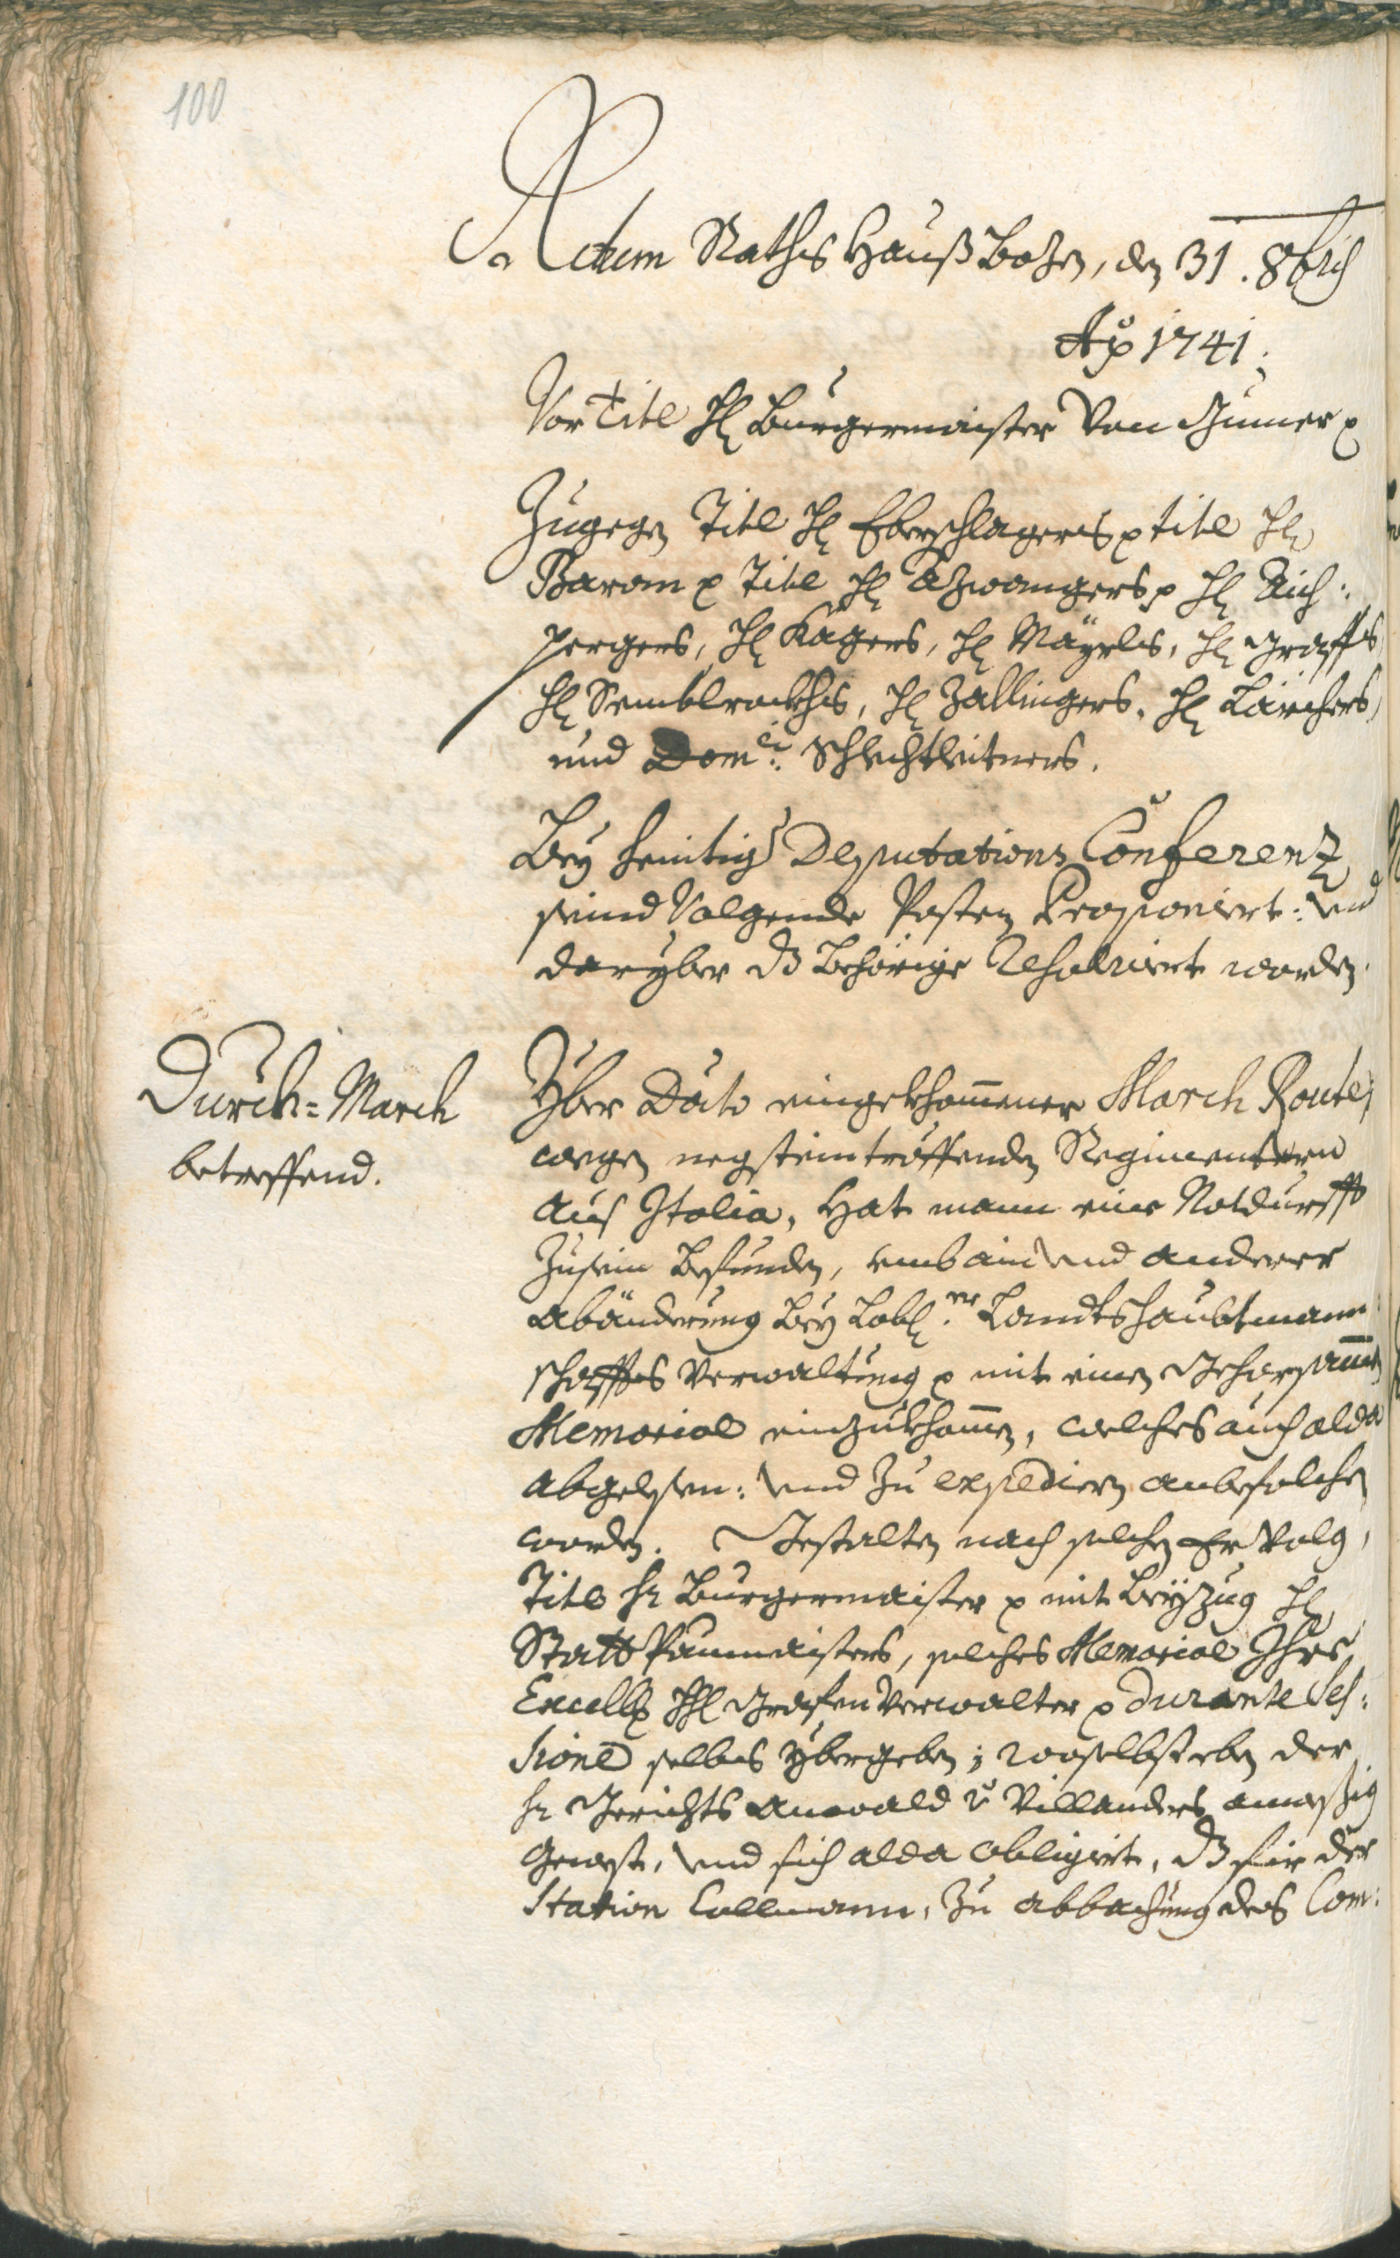 100
Actum Raths Hauß Bozen, den 31. 8bris
Ao 1741.
Vor Titl H: Burgermaister Von Gumer p
Zugegen Titl H: Eberschlagers p titl H:
Barom p Titl H: Azwangers p H: Aich:
pergers, H: Kägers, H: Mayrls, H: Graffs
H: Semblrockhs, H: Zallingers, H: Larchers,
und Domci: Schlechtleitners.
Bey heintig Deputations Conferenz
seind Volgende Posten Proponiert: und
daryber dz Behörige Resolviert worden.
Durch-March
betreffend.
Yber Dato eingekhommener March Route,
wegen negsteintröffenden Regimentern
Aus Italia, Hat mann eine Notdurfft
Zusein Befunden, umb ain und anderer
Abänderung Bey Lobl:er Landtshaubtmann:
schaffts Verwaltung p mit einen Gehorsammen
Memorial einzukhommen, welches auch alda
Abgelesen: und Zu expedieren anbefolchen
worden. Gestalten nach solchen Ervolg,
Titl Hr Burgermaister p mit Beyzug H:
Statt Paumaisters, solches Memorial Ihro
Excell: H: Grafen Verwalter p durante Ses:
sione selbes ybergeben; wooselbst eben der
Hr Gerichts Anwald v Villanders
Gewest, und sich alda obligiert, dz fir der
Station Collmann, Zu abbachung des Com: